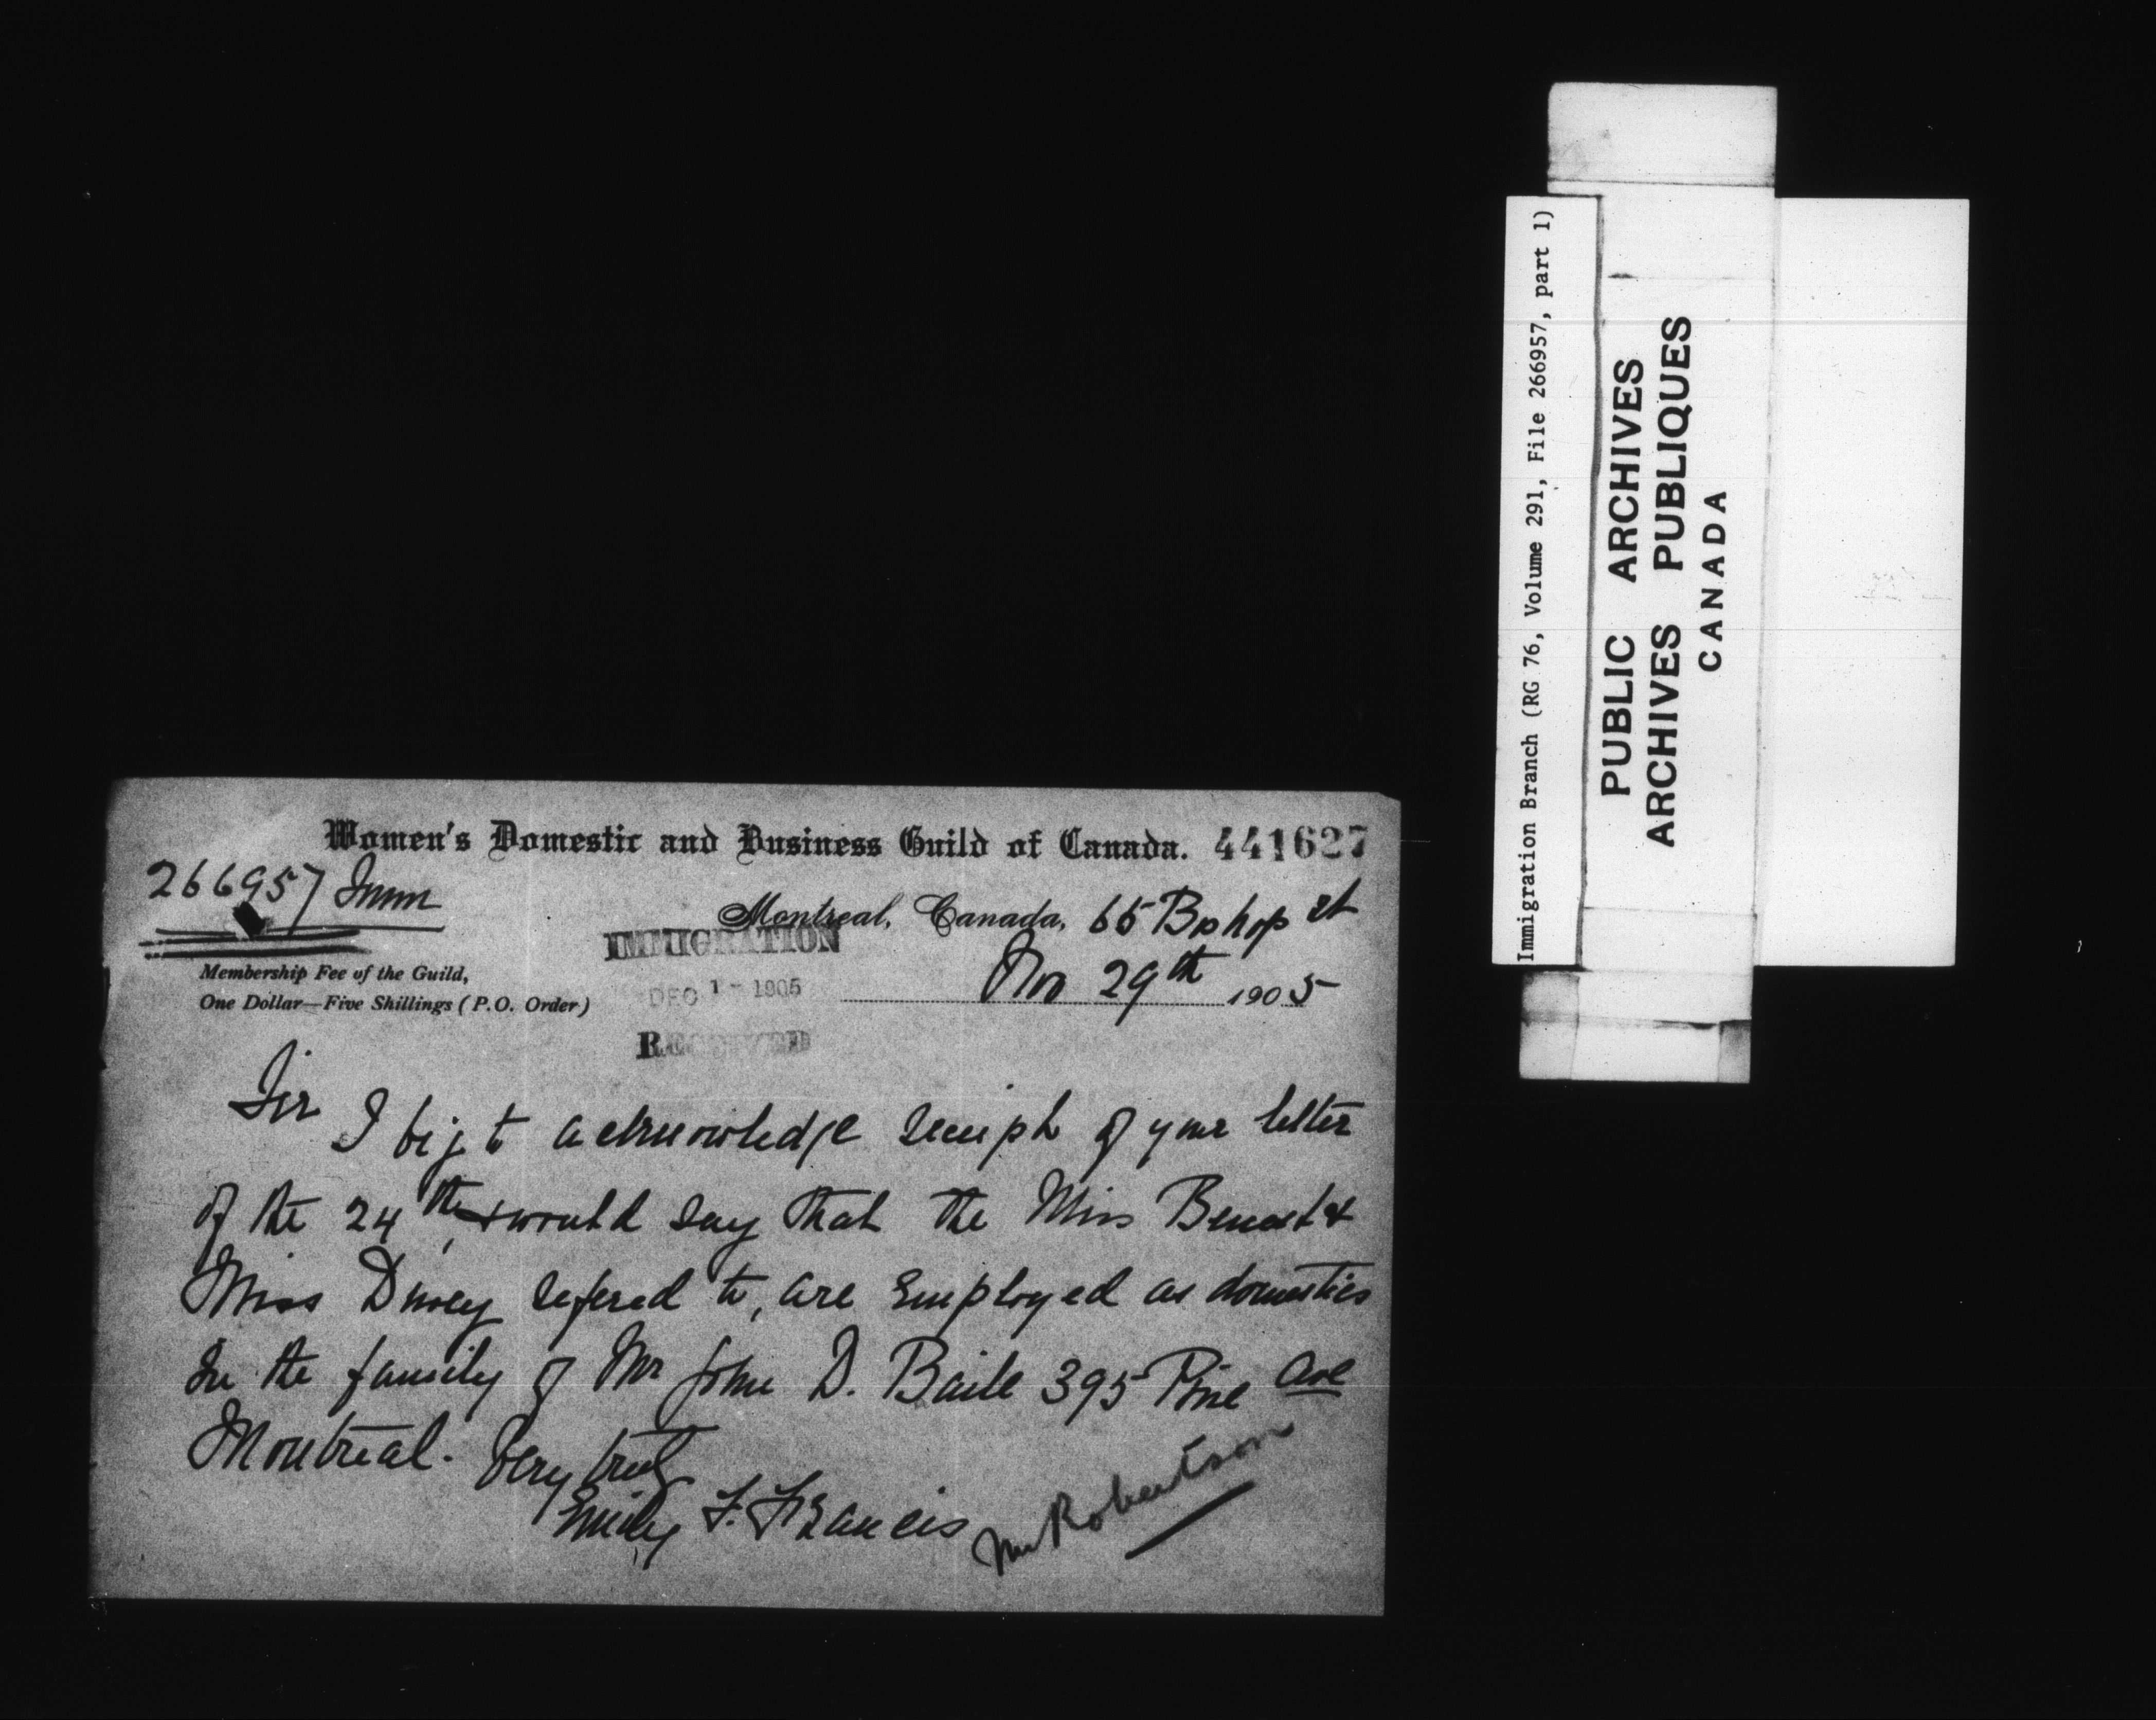 Women's Domestic and Business Guild of Canada. 441627
266957 Imm
Montreal, Canada, 65 Bishop St
IMMIGRATION
Nov 29th 1905
DEC 1 - 1905
RECEIVED
Membership Fee of the Guild,
One Dollar—Five Shillings (P.O. Order)
Sir
I beg to acknowledge receipt of your letter
of the 24th, & would say that the Miss &
Miss refered to, are Employed as domestics
In the family of Mr John D. Baile 395 Pine Ave
Montreal. Very truly
Emily F. Francis
Mr Robertson
Immigration Branch (RG 76, Volume 291, File 266957, part 1)
PUBLIC ARCHIVES
ARCHIVES PUBLIQUES
CANADA